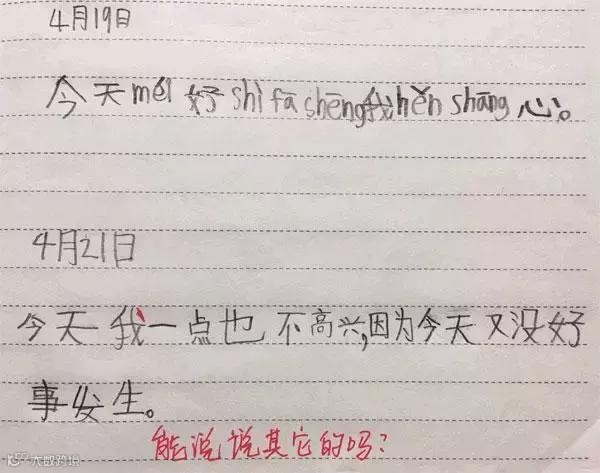 4月19日
今天méi好shì fā shēng我hěn shāng心。
4月21日
今天我一点也不高兴,因为今天又没好
事发生。
能说说其它的吗?
大数跨境